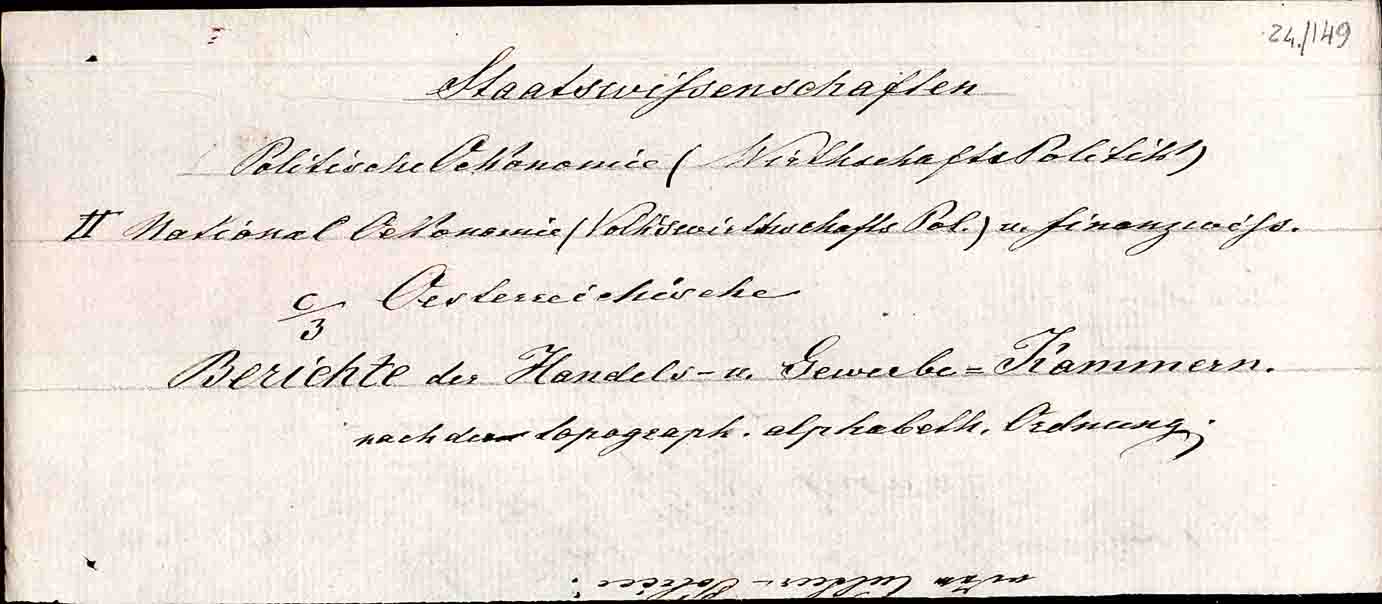 24./149
Staatswissenschaften
Politische Oekonomie (Wirthschafts Politik)
II National Oekonomie (Volkswirthschafts Pol.) u. finanzwiss.
c/3 Oesterreichische
Berichte der Handels- u. Gewerbe=Kammern.
nach der topograph. alphabeth. Ordnung.